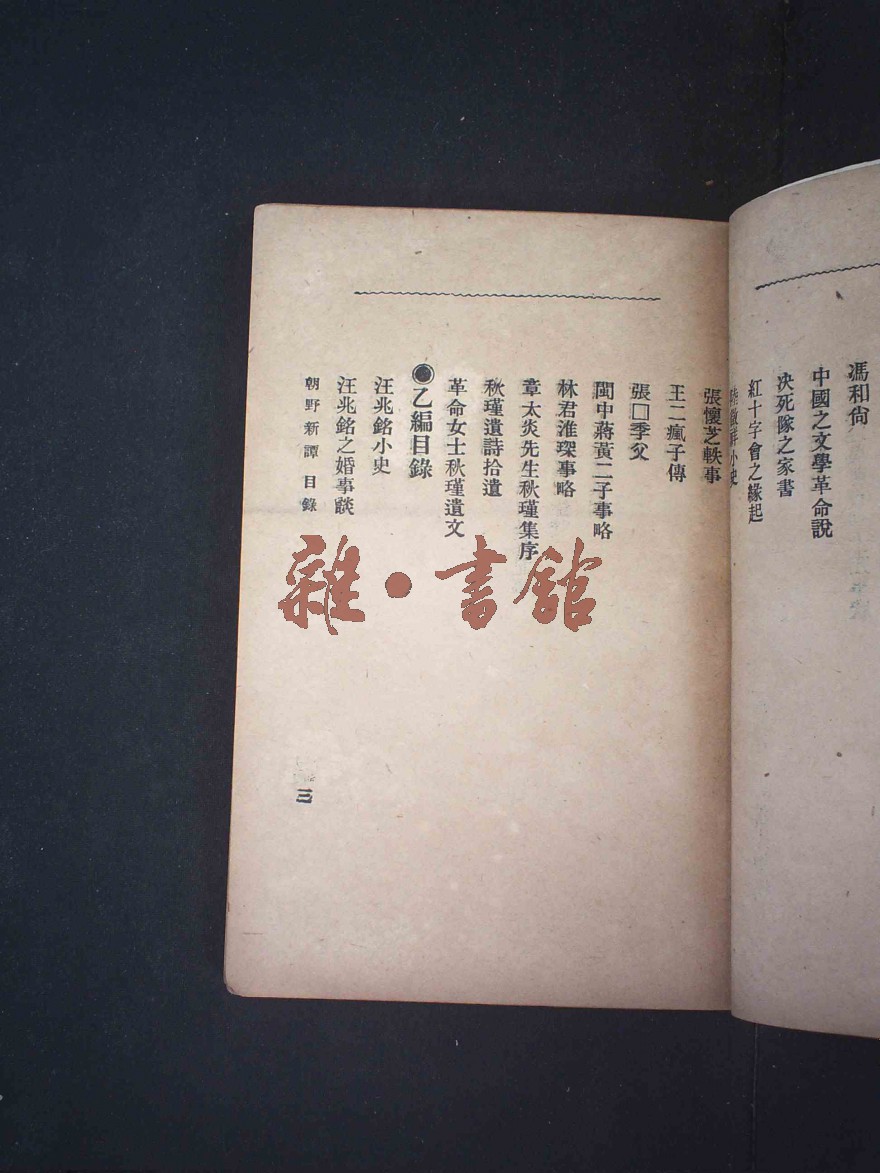 馮和尙
中國之文學革命說
決死隊之家書
紅十字會之緣起
陸徵祥小史
張懷芝軼事
王二瘋子傳
張□季父
閩中蔣黃二子事略
林君淮琛事略
章太炎先生秋瑾集序
秋瑾遺詩拾遺
革命女士秋瑾遺文
●乙編目錄
汪兆銘小史
汪兆銘之婚事談
朝野新譚 目錄
三
雜·書館